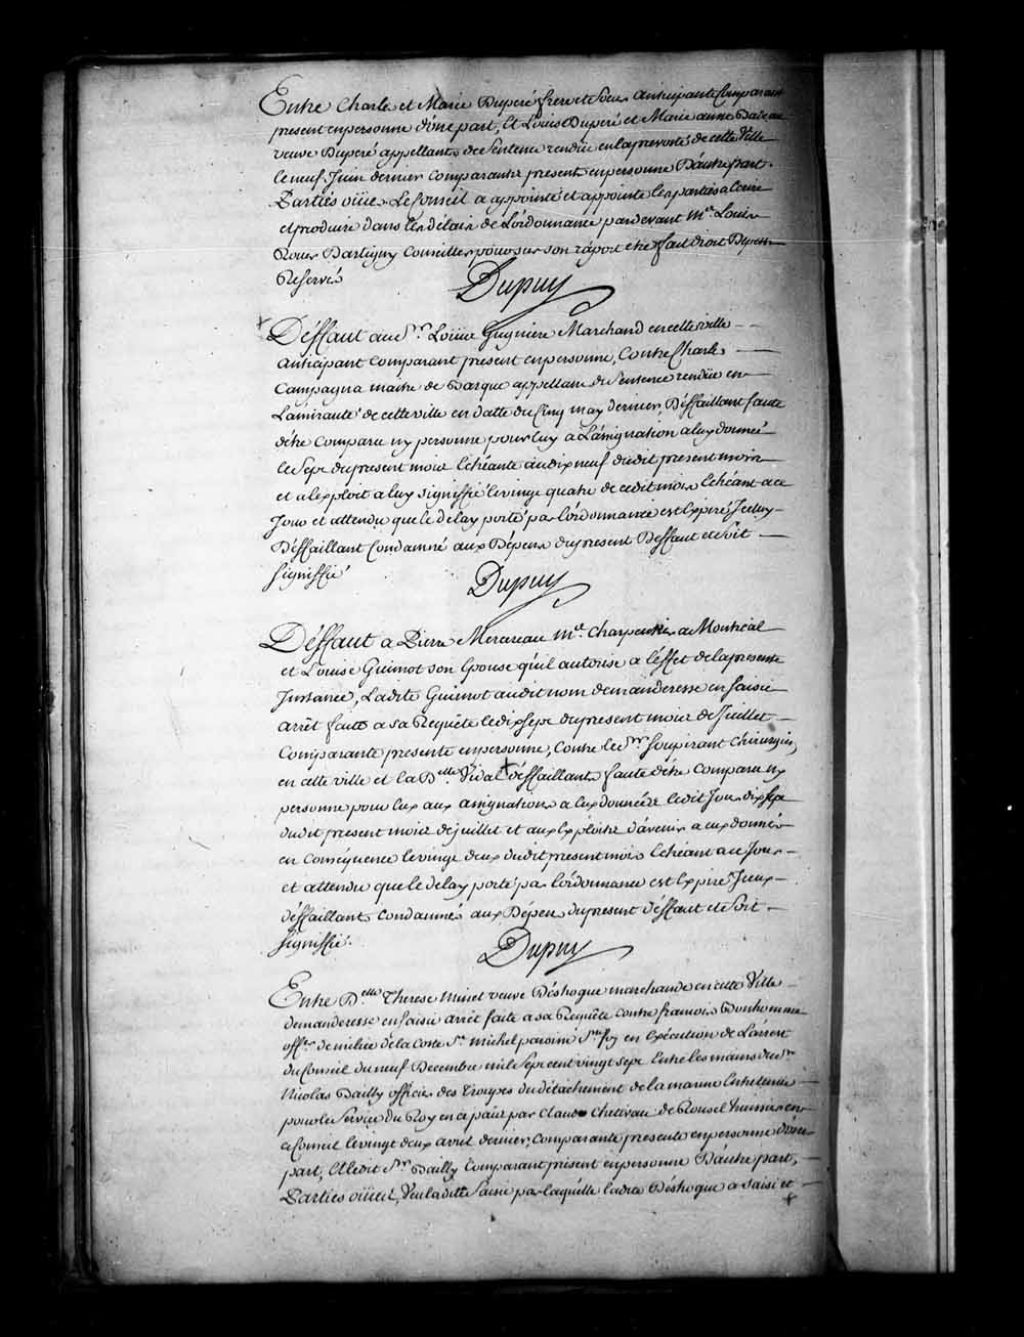 Entre Charle et Marie Duperé frere et Sœur anticipants Comparans
present en personne d'une part, Et Louis Duperé et Marie anne
veuve Duperé appellants de Sentence rendüe en la prevosté de cette Ville
le neuf Juin dernier comparants present en personne D'autre part.
Parties oüies Le Conseil a appointé et appointe les parties a Ecrire
et produire dans les délais de L'ordonnance pardevant Me. Louis
Roüer Dartigny Conseiller pour sur son raport etre fait droit Depens
Reservés
Dupuy
Déffaut au Sr. Loüis Gugniere Marchand en cette ville
anticipant comparant present en personne, Contre Charles
Campagna maitre de Barque appellant de Sentence rendüe en
Lamirauté de cette ville en datte du Cinq may dernier, Déffaillant faute
d'être comparu ny personne pour luy a L'assignation a luy donnée
le Sept du present mois Echéante au dix neuf dudit present mois
et a lexploit a luy signiffié le vingt quatre de cedit mois Echéant a ce
Jour et attendu que le delay porté par l'ordonnance est Expiré Iceluy
Déffaillant Condamné aux Dépens du present Deffaut et Soit
signiffié
Dupuy
Déffaut a Pierre Mercereau me. charpentier a Montréal
et Louise Guimot son Epouse qu'il autorise a l'éffet de la presente
Instance, Ladite Guimot audit nom demanderesse en saisie
arrêt faitte a sa Requête le dix sept du present mois de Juillet
Comparante presente en personne, Contre le Sr. Soupirant Chirurgien
en cette ville et la Delle Vidal déffaillants faute d'être comparu ny
personne pour eux aux assignations a eux données ledit Jour dix sept
dudit present mois de juillet et aux Exploits d'avenir a eux donnés
en conséquence le vingt deux dudit present mois Echéant a ce Jour
et attendu que le delay porté par l'ordonnance est Expiré Iceux
déffaillants condamnés aux Dépens du present déffaut et Soit
signiffié.
Dupuy
Entre Delle Therese Minet veuve Déshoque marchande en cette Ville
demanderesse en saisie arrêt faite a sa Requête contre francois Bonhomme
offer de milice de la Coste St. michel paroisse Ste foy en Exécution de L'arrest
du Conseil du neuf Decembre mil Sept cent vingt sept Entre les mains du Sr
Nicolas Bailly officier des Troupes du détachement de la marine Entretenües
pour le Service du Roy en ce païs par Claude Chetiveau de Rousel huissier en
ce Conseil le vingt deux avril dernier, Comparante presente en personne d'une
part, Et ledit Sr. Bailly Comparant présent en personne D'autre part,
Parties oüies, Veu ladite saisie par laquelle ladite Déshoque a saisi et